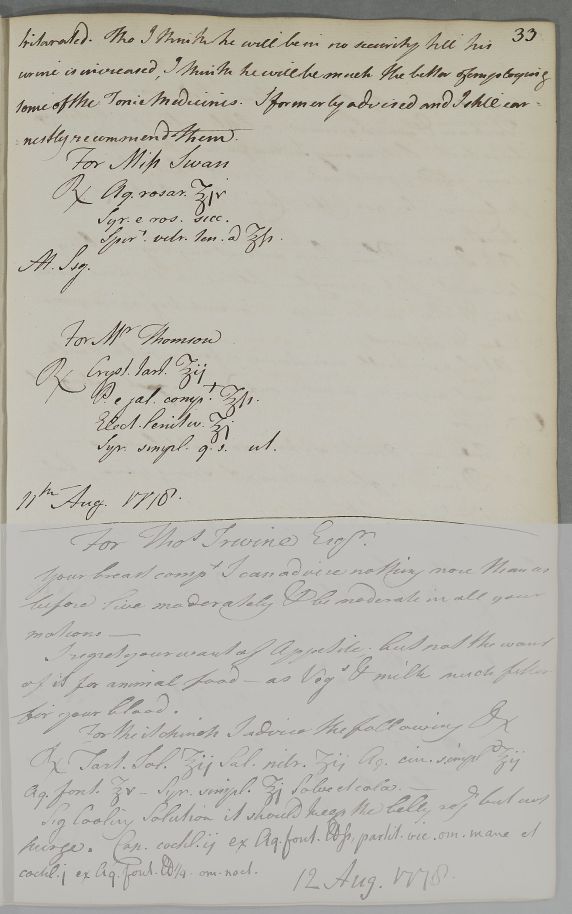 33
triturated. Tho I think he will be in no security till his
urine is increased, I think he will be much the better of employing
some of the Tonic Medicines. I formerly advised and I still ear-
-nestly recommend them.
For Miss Swan
℞ Aq. rosar. ℥iv
Syr. e ros. sicc.
Spirt. vitr. ten. a ʒſs.
M. Sig.
For Mr. Thomson
℞ Cryst. tart. ʒij
P. e jal. compt. ℥ſs.
Elect. lenitiv. ℥j
Syr. simpl. q. s. ut.
11th Aug. 1778.
For Thos. Irwine Esqr.
Your breast compt. I can advice nothing more than as
before live moderately & be moderate in all your
motions —
I regret your want of Appetite. but not the want
of it for animal food — as Vegs. & milk much fitter
for your blood.
For the itchiness I advice the following ℞
℞ Tart. Sol. ʒij Sal. nitr. ʒij Aq. cin. simpl. ℥ij
Aq. font. ℥v — Syr. simpl. ℥j Solve et cola. —
Sig Cooling Solution it should keep the belly regr. but not
purge. Cap. cochl. ij ex Aq. font. ℔ſs, partit. vic. om. mane et
cochl. j ex Aq. font. ℔¼ om. noct.
12 Aug. 1778.